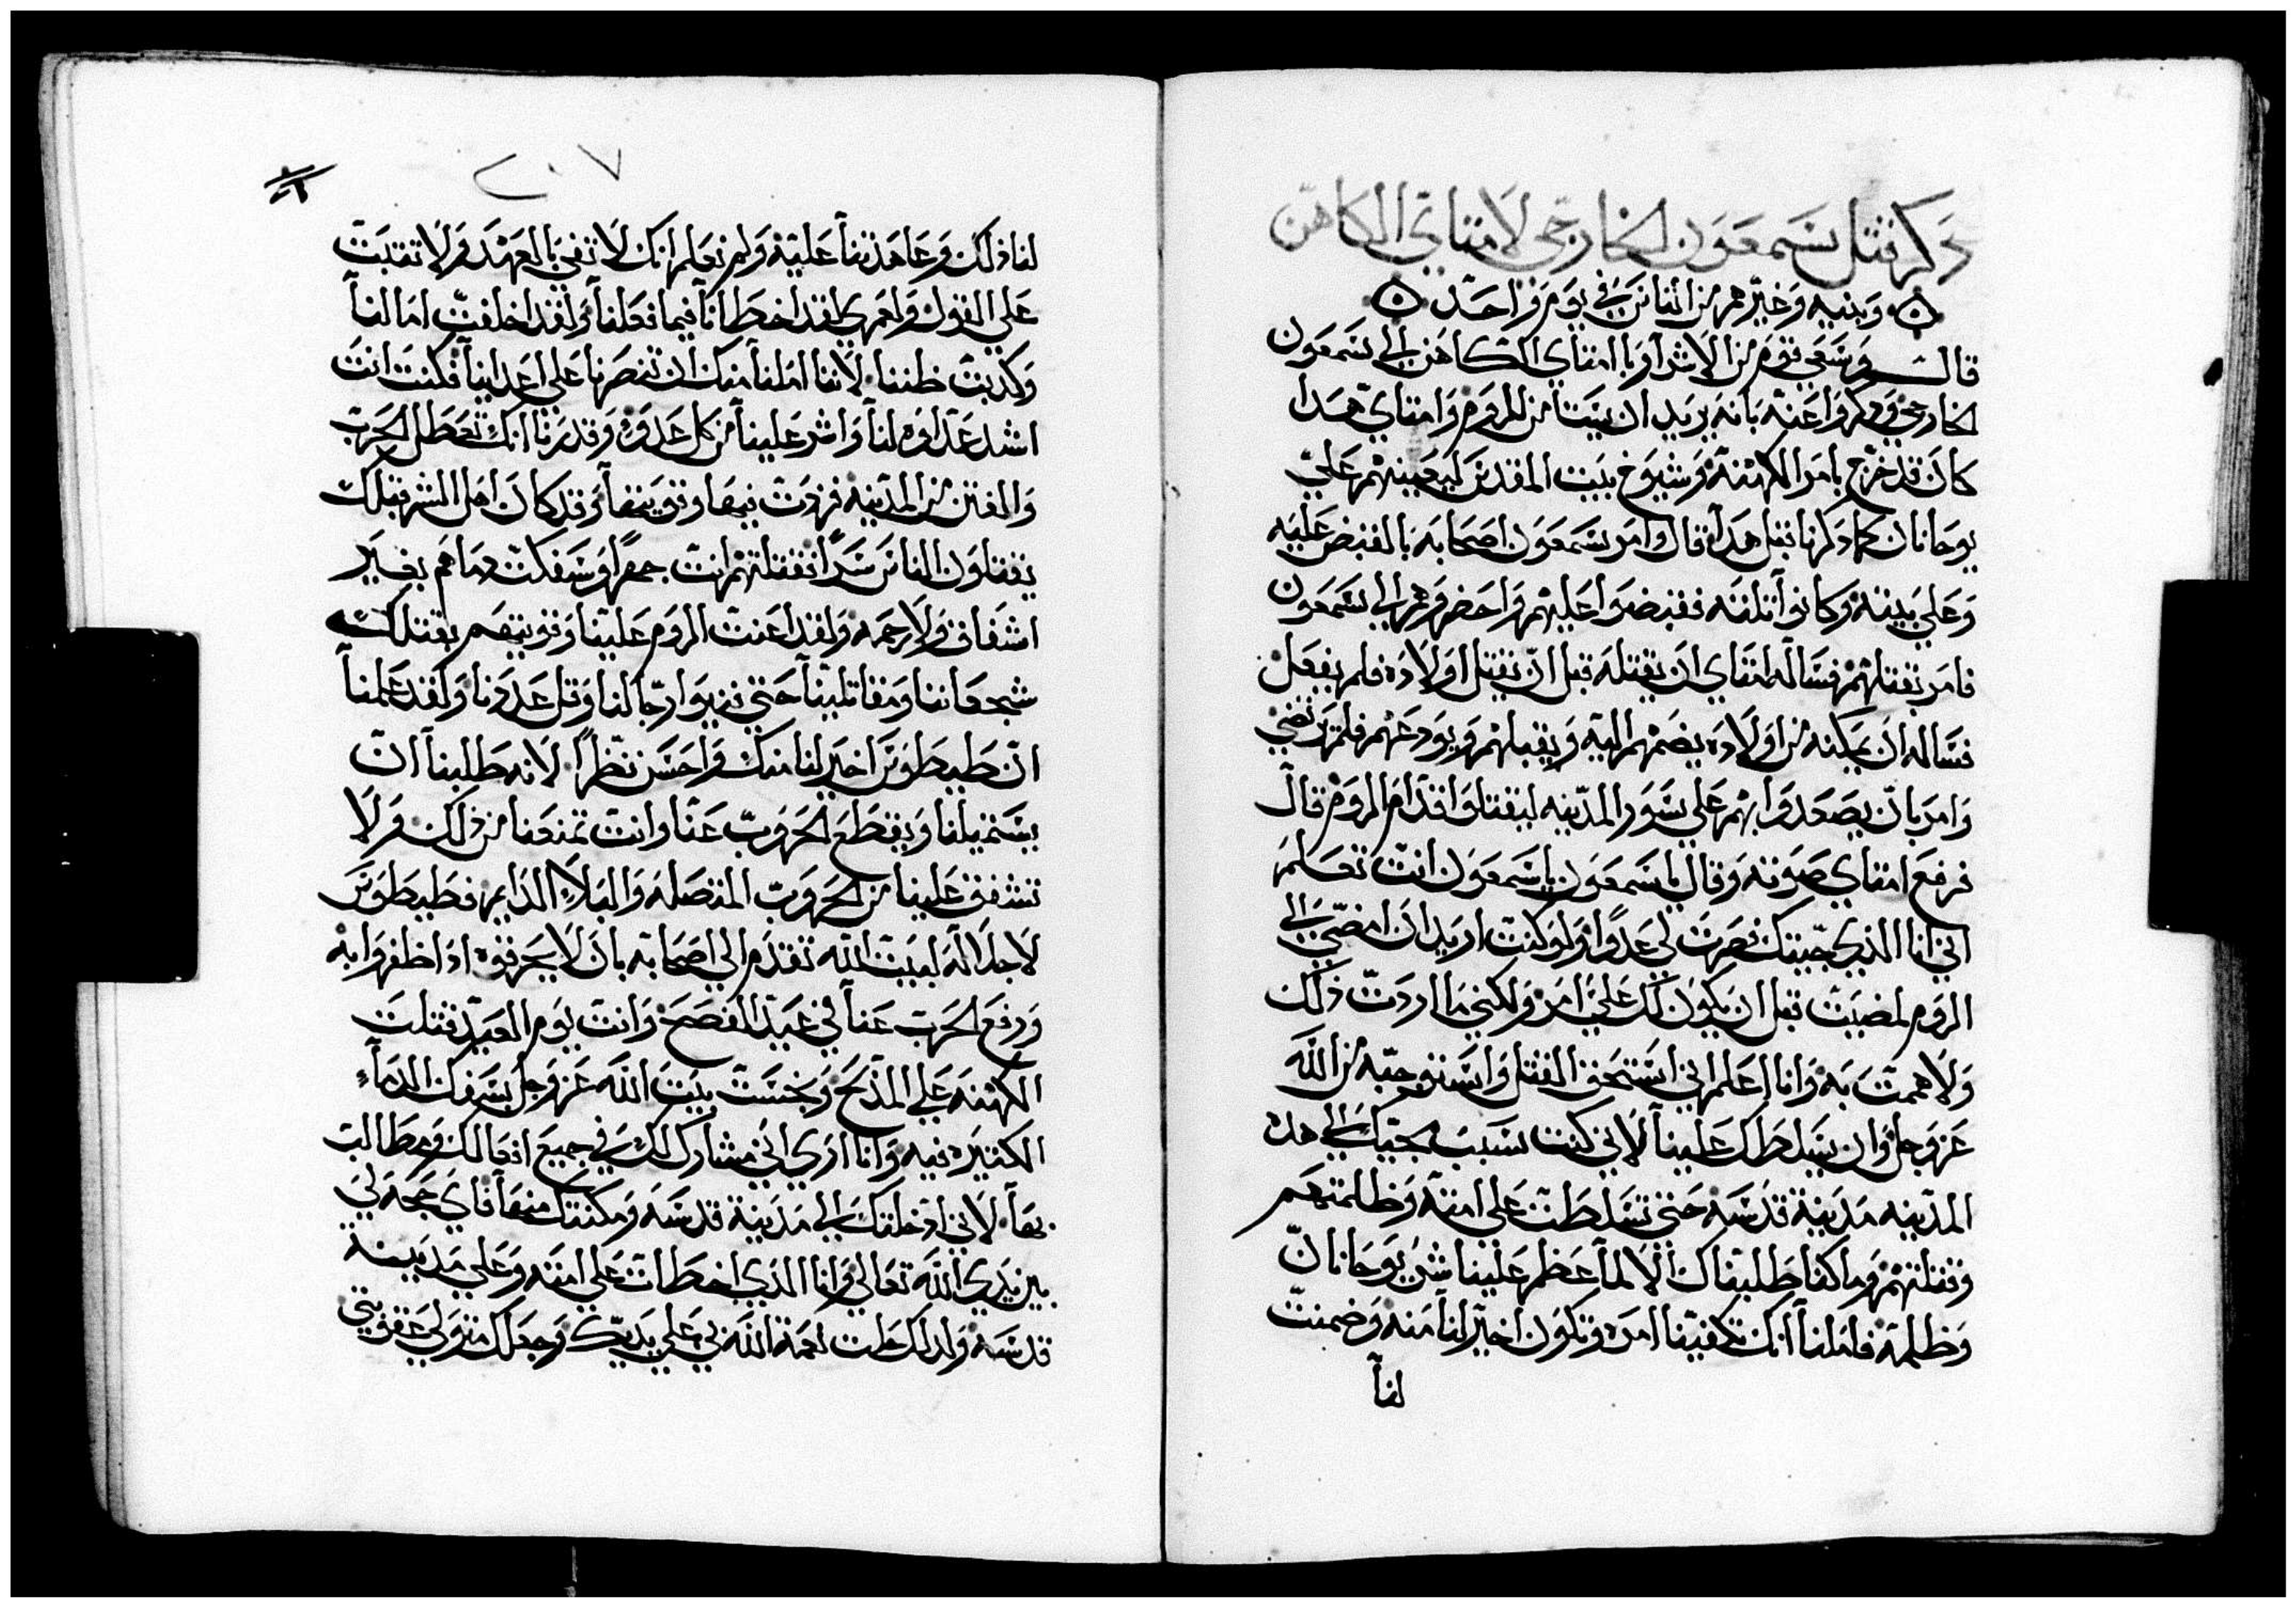 ذكر قتل سمعون الخارجي لامتاي الكاهن
وبنيه وغيرهم من الناس في يوم واحد
قال وسعي قوم من الاشرار بامتاي الكاهن الي سمعون
الخارجي وذكروا عنه بانه يريد ان يستامن للروم وامتاي هدا
كان قد خرج بامر الكهنة وشيوخ بيت المقدس ليعينهم علي
يوحانان كما ذكرنا قبل هدا قال وامر سمعون اصحابه بالقبض عليه
وعلي بنيه وكانوا تلته فقبضوا عليهم واحضروهم الي سمعون
فامر بقتلهم فساله امتاي ان يقتله قبل ان يقتل اولاده فلم يفعل
فساله ان يمكنه من اولاده يضمهم اليه ويقبلهم ويودعهم فلم يرتضي
وامر بان يصعدوا بهم علي سور المدينه ليقتلوا قدام الروم قال
فرفع امتاي صوته وقال يا سمعون يا سمعون انت تعلم
اني انا الدي جيبتك فصرت لي عدوا ولو كنت اريد ان امضي الي
الروم لمضيت قبل ان يكون لك علي امر ولكني ما اردت ذلك
ولا هممت به وانا اعلم اني استحق القتل واستوجبه من الله
عز وجل وان يسلطك علينا لاني كنت سبب مجيك الي هده
المدينه مدينة قدسه حتي تسلطت علي امته وظلمتهم
وقتلتهم وما كنا طلبناك الا لما عظم علينا شر يوحانان
وظلمه فاملنا انك تكفينا امره وتكون اخير لنا منه وضمنت
لنا
٢٠٧
لنا ذلك وعاهدتنا عليه ولم نعلم انك لا تفي بالعهد ولا تثبت
علي القول ولعمري لقد اخطانا فيما فعلنا ولقد اخلفت امالنا
وكدبت ظننا لاننا املنا منك ان تنصرنا علي اعداينا فكنت انت
اشد عداوه لنا واشر علينا من كل عدو وقدرنا انك تعطل الحرب
والفتن من المدينه فزدت فيها وقويتها وقد كان اهل الشر قبلك
يقتلون الناس سرا فقتلتهم انت جهرا وسفكت دماهم بغير
اشفاق ولا رحمه ولقد اعنت الروم علينا وقويتهم بقتلك
شجعاننا ومقاتلينا حتي رجالنا وقل عددنا ولقد علمنا
ان طيطوس اخير لنا منك واحسن نظرا لانه طلبنا ان
يستميلنا ويقطع الحروب عنا وانت تمنعنا من ذلك ولا
تشفق علينا من الحروب المتصله والبلا الدايم وطيطوس
لاجلاله لبيت الله تقدم الي اصحابه بان لا يحرقوه ادا ظفروا به
ورفع الحرب عنا في عيد الفصح وانت يوم العيد قتلت
الكهنه علي المذبح ونجست بيت الله عز وجل بسفك الدماء
الكتيره فيه وانا اري اني مشارك لك في جميع افعالك ومطالب
بها لاني ادخلتك الي مدينة قدسه ومكنتك منها فاي حجه لي
بين يدي الله تعالي وانا الدي اخطات علي امته وعلي مدينة
قدسه ولدلك حلت نعمة الله بي علي يديك وجعلك متولي عقوبتي